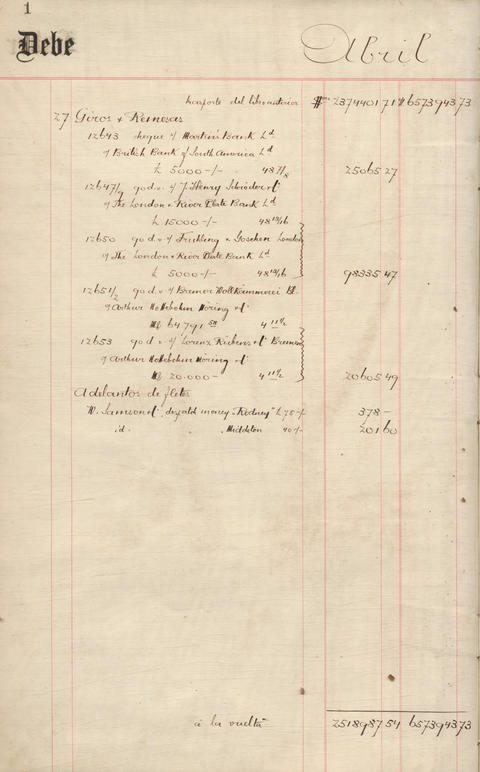 1
Debe Abril
Trasporte del libro anterior $ 2374401 71 $ 6573943 73
27 Giros & Remesas
12643 cheque s/ Martin's Bank Ld
s/ British Bank of South America Ld
£ 5000-/- 48 7/8 25065 27
12647/9 90 d.v. s/ J. Henry Schröder &
s/ The London & River Plate Bank Ld
£ 15000-/- 48 13/16
12650 90 d.v. s/ Frühling & Goschen London
s/ The London & River Plate Bank Ld
£ 5000-/- 48 13/16 98335 47
12651/2 90 d.v. s/ Bremer Wollkämmerei Bl.
s/ Arthur Hottebohm Höring &
Mk 64791 4 11 1/2
12653 90 d.v. s/ Lorenz Rickens & Bremen
s/ Arthur Hottebohm Höring &
Mk 20.000- 4 11 1/2 20605 49
Adelantos de fletes
"W. Samson &", despatch money "Rodney" £ 75-/- 378 -
id. " Middleton 40-/- 201 60
á la vuelta 2518987 54 6573943 73